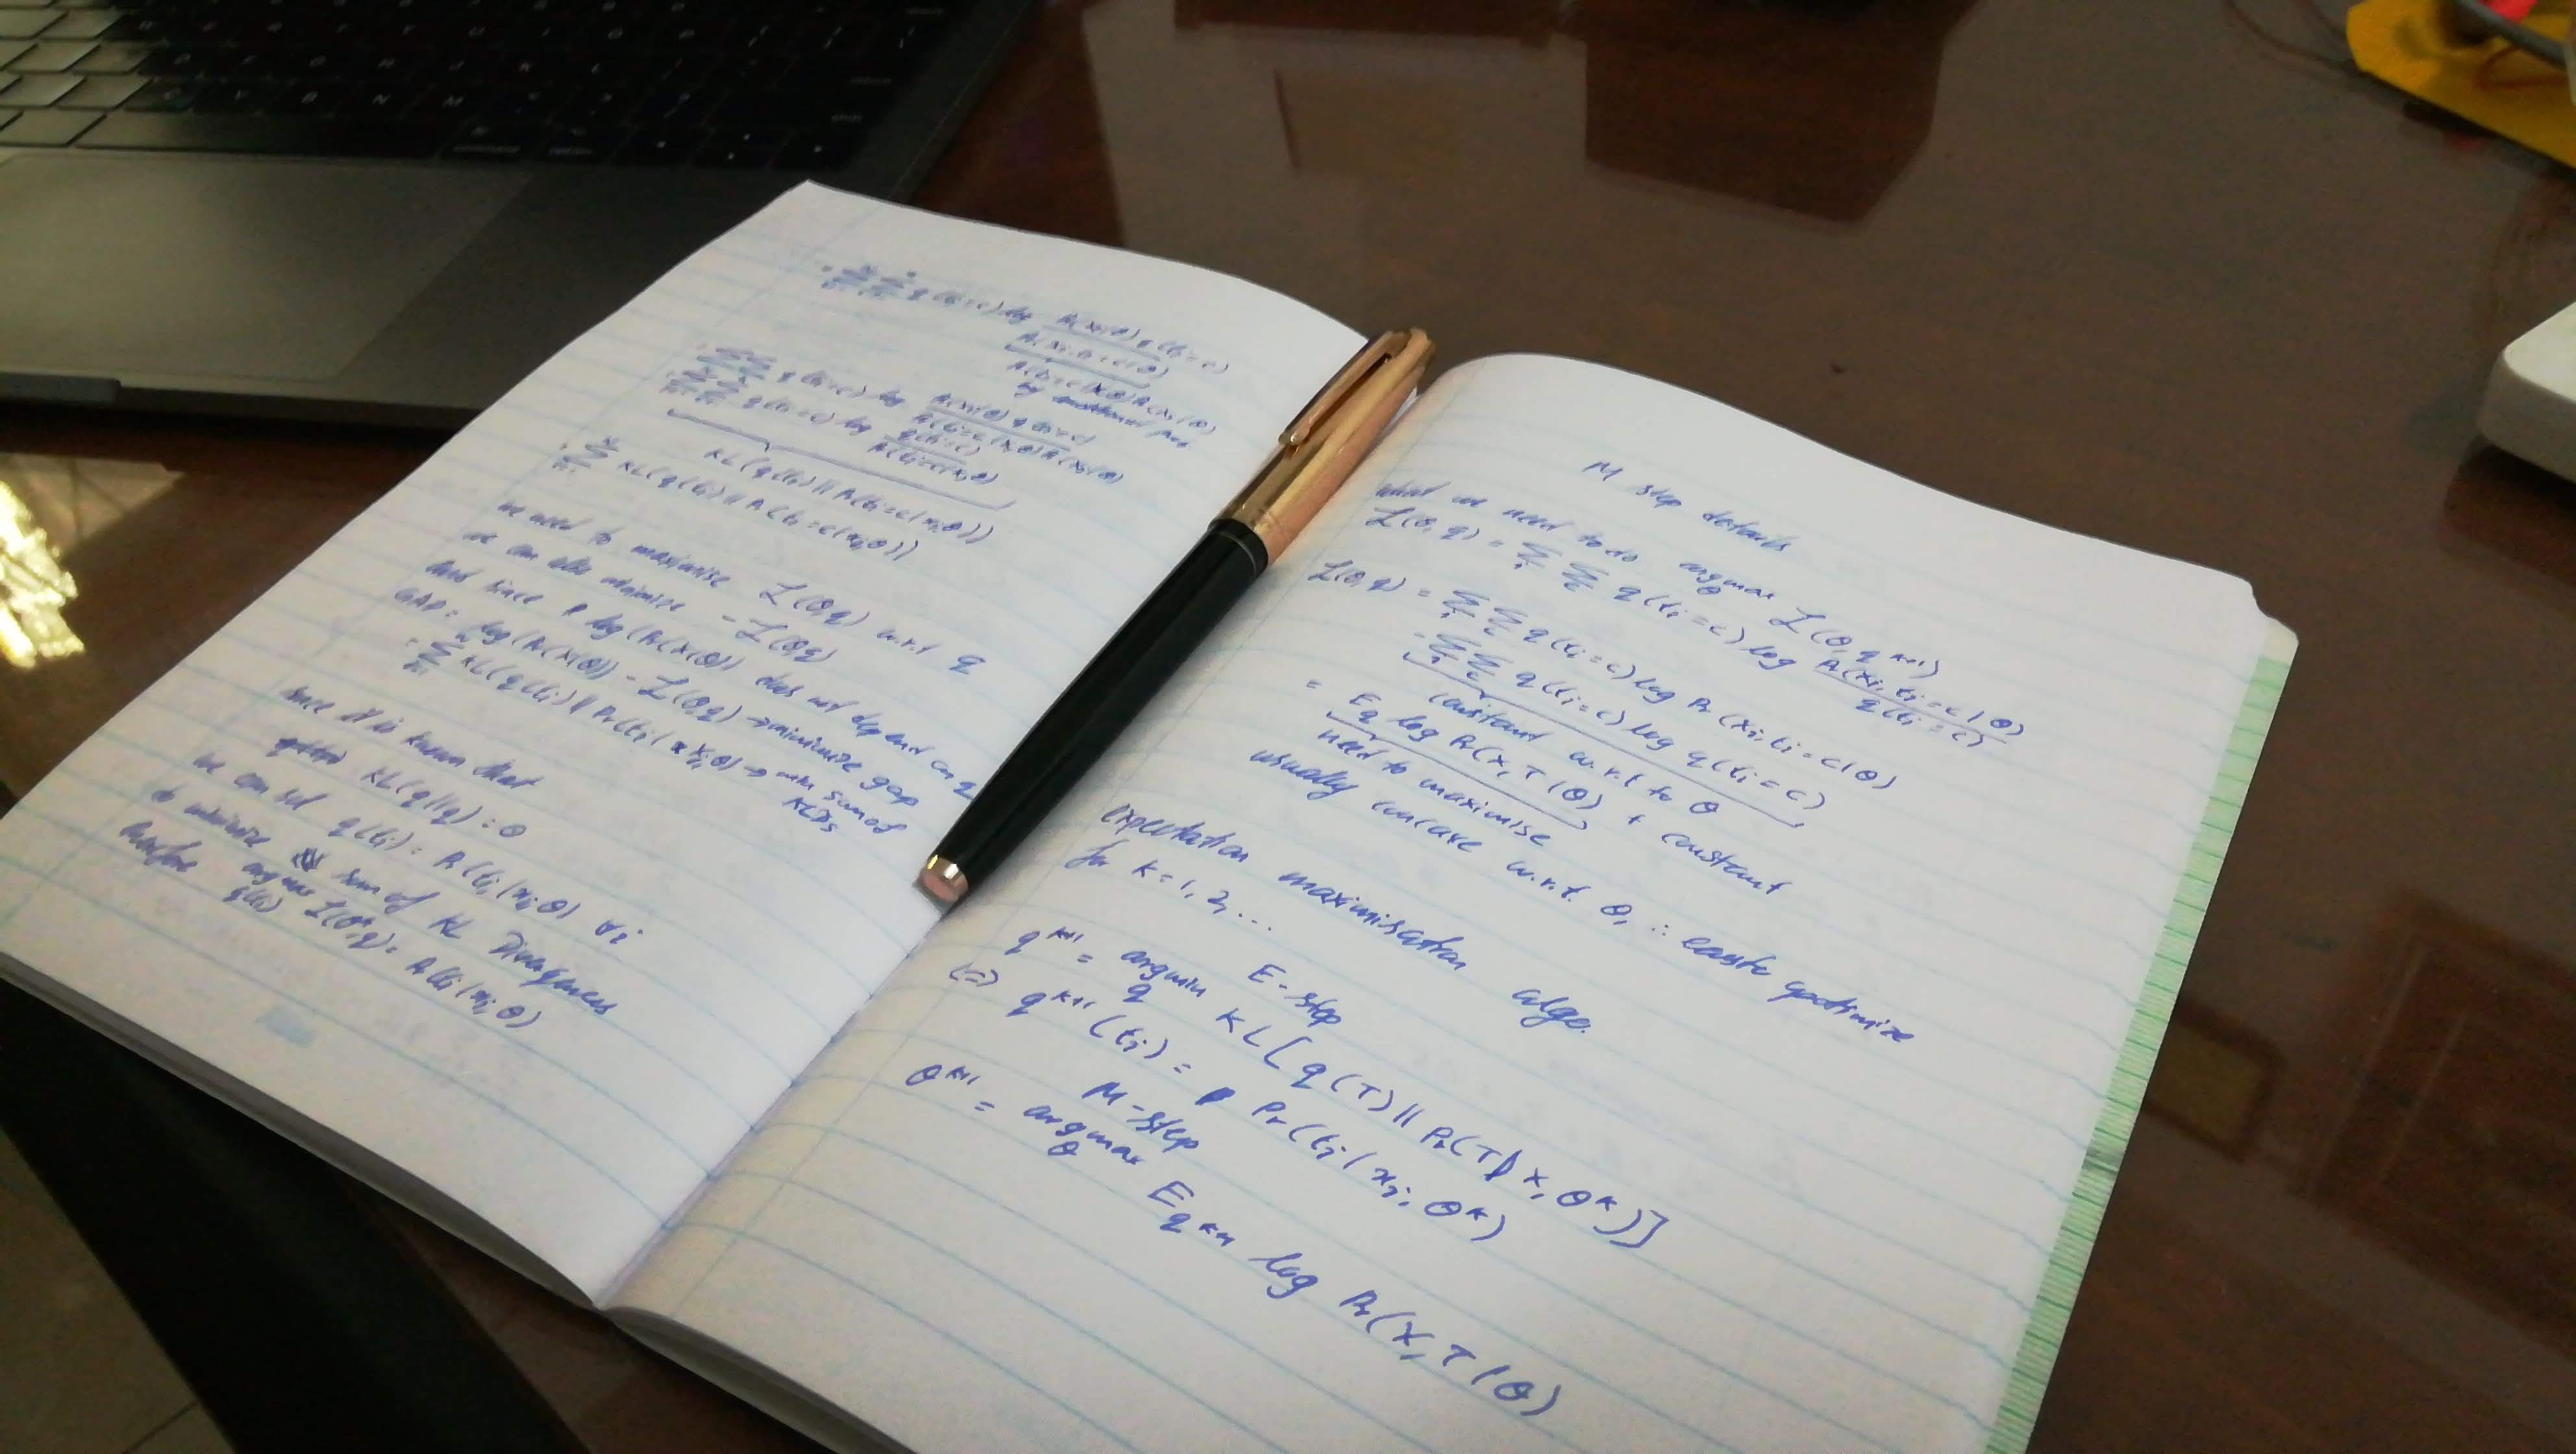 = Σ Σ q(ti=c) log Pr(xi|θ) q(ti=c)
Pr(xi, ti=c|θ)
Pr(ti=c|xi,θ) Pr(xi|θ)
by
= Σ Σ q(ti=c) log Pr(xi|θ) q(ti=c)
Pr(ti=c|xi,θ) Pr(xi|θ)
= Σ Σ q(ti=c) log q(ti=c)
Pr(ti=c|xi,θ)
KL(q(ti) || Pr(ti=c|xi,θ))
= Σ KL(q(ti) || Pr(ti=c|xi,θ))
we need to maximise L(θ,q) w.r.t q
we can also minimise -L(θ,q)
and since log(Pr(X|θ)) does not depend on q
GAP = log(Pr(X|θ)) - L(θ,q) → minimize gap
= Σ KL(q(ti) || Pr(ti|xi,θ)) → min sum of
KLDs
since it is known that
KL(q||q) = 0
we can set q(ti) = Pr(ti|xi,θ) ∀i
to minimise sum of KL Divergences
therefore arg max L(θ,q) = Pr(ti|xi,θ)
q(ti)
M step details
what we need to do argmax L(θ, q^k+1)
θ
L(θ,q) = Σ Σ q(ti=c) log Pr(xi, ti=c|θ)
i c q(ti=c)
L(θ,q) = Σ Σ q(ti=c) log Pr(xi, ti=c|θ)
- Σ Σ q(ti=c) log q(ti=c)
constant w.r.t to θ
= Eq log Pr(X,T|θ) + constant
need to maximise
usually concave w.r.t. θ, ∴ optimize
expectation maximisation algo.
for k=1, 2, ...
E-step
q^k+1 = argmin KL[q(T) || Pr(T|X, θ^k)]
q
<=> q^k+1(ti) = Pr(ti|xi, θ^k)
M-step
θ^k+1 = argmax E q^k+1 log Pr(X,T|θ)
θ